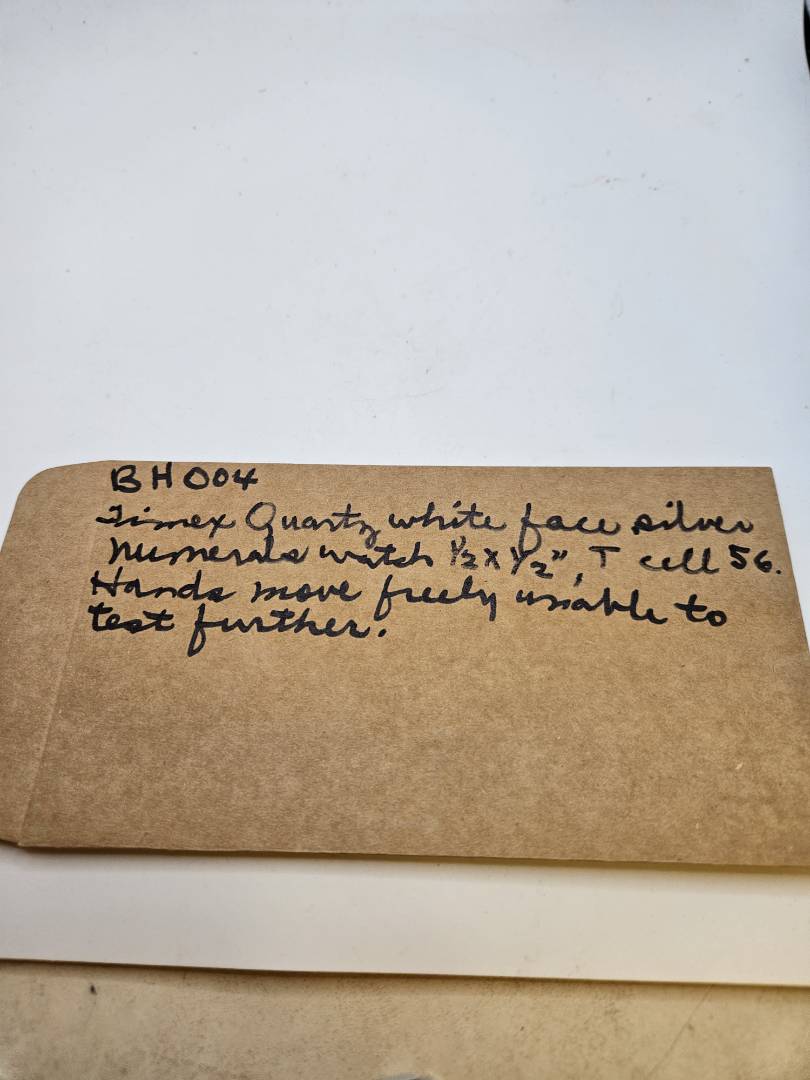 BH004
Timex Quartz white face silver
numerals watch 1/2 x 1/2", T cell 56.
Hands move freely unable to
test further.